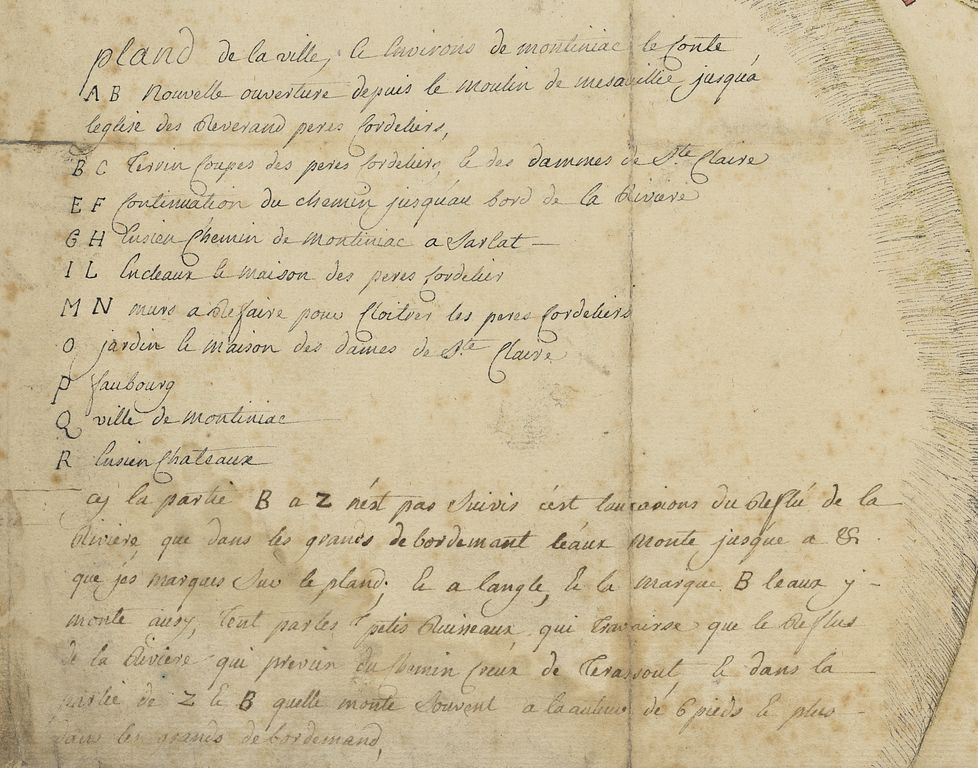 pland de la ville, le Environs de montiniac le Conte
A B Nouvelle ouverture depuis le moulin de mesaullie jusqua
leglise des Reverand peres Cordeliers,
B C Terrin Coupes des peres Cordeliers, le des dammes de Ste Claire
E F Continuation du chemin jusquau bord de la Riviere
G H Ensien Chemin de montiniac a Sarlat
I L Encleaux le maison des peres Cordelier
M N murs a Refaire pour Cloitrer les peres Cordeliers
O jardin le maison des dames de Ste Claire
P faubourg
Q ville de montiniac
R Ensien Chateaux
cy la partie B a Z n'est pas Suivis c'est du Reflu de la
Riviere que dans les grands debordemant leaux monte jusque a &.
que jes marques Sur le pland; le a langle, le la marque B leaux y
monte ausy, Tent par les petis Ruisseaux qui Travairse que le Reflus
de la Riviere qui previen du Chemin Creux de Terassout, le dans la
partie de Z le B quelle monte Souvent a laauteur de 6 pieds le plus
dans les grands debordemand,